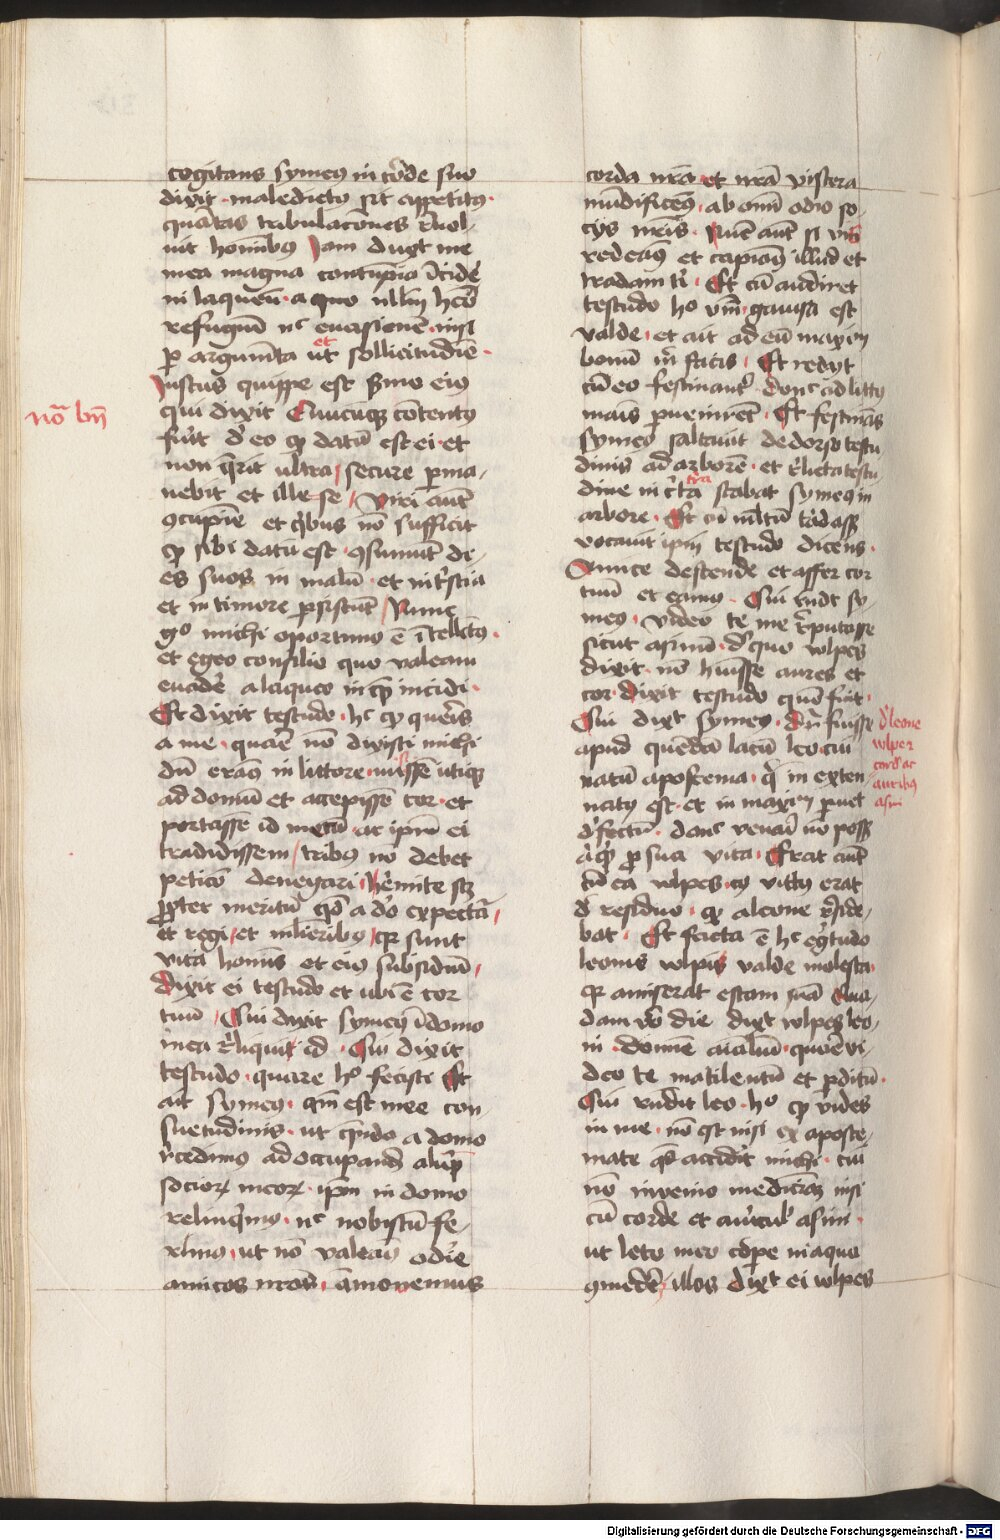 cogitans symeus in cor̄de suo
dixit · maledictus sit appetitus ·
quātas tribulaciones r̄uol-
uit hominibus Jam duxit me
mea magna contumpia īcide
in laqueū · a quo nllm̄ heō
refugiū nc̄ euasionem · nisi
per argumēta et ut sollicitudīe ·
Justus quippe est sermo eius
qui dixit Quicunque cōtentus
nō bn̄
fuit de eo quod datū est ei · et
non querit ultra / secure perma-
nebit et ille se / Viri aūt
9cupīe et quibus nō sufficit
quod sibi datū est · 9sumūt di-
es suos in malū · et in tristicia
et in timore persistūt / Nunc
go michi oportunus ē ītellectus ·
et egeo consilio quo valeam
euadere a laqueo in quem incidi ·
Et dixit testudo · hc̄ quod queris
a me · quare nō dixisti michi
dū eram in littore · iuissem utique
ad domū et accepissem cor · et
portassem id mecū ac ipm̄ ei
tradidissem / tribus nō debet
peticō denegari / heremite scz
propter meritū quod a deo expectat /
et regi / et mulieribus / quia sunt
vita hominis et eius subsidiū /
Dixit ei testudo et ubi ē cor
tuū / Cui dixit symeus in domo
mea reliqui id · Cui dixit
testudo · quare hoc fecisti Et
ait symeus · qm̄ est mee con-
suetudinis · ut quando a domo
recedimus ad occupandum aliquem
sociorum meorum · ipm̄ in domo
relinquimus · nc̄ nobiscum fe-
rimus · ut nō valeam odire
amicos nr̄os · āmonemus
corda nr̄a et nr̄a viscera
mūdificem · ab omni odio so-
cijs nr̄is · Nūc aūt si vis
redeam et capiam illud et
tradam tibi · Et cū audiret
testudo hoc verbum · gauisa est
valde · et ait ad eū maximū
bonū m̄ facis / Et redijt
cū eo festinanter · donec ad littus
maris peruenirent · Et festinās
symeus saltauit de dorso testu-
dinis ad arborē · et relicta testu-
dine in terra stabat symeus in
arbore · Et cū multū tardasset
vocauit ipm̄ testudo dicens ·
Amice descende et affer cor
tuū et eamus · Cui rn̄dit sy-
meus · video te me reputasse
sicut asinū · de quo wlpes
dixit · nō habuisse aures et
cor · Dixit testudo quō fuit ·
Cui dixit symeus · Dn̄r fuisse
de leone
wlpe
corde ac
auribus
asini
apud quēdā lacū leo cui
natū apostema · que in exten-
uatus est · et in maximū peruenit
defectū · donec venari nō posset
aliquid pro sua vita · Erat aūt
ibi ea wlpes · cuius victus erat
de residuo · quod a leone reside-
bat · Et facta ē hc̄ egritudo
leonis wlpis valde molesta ·
quia amiserat escam suā Qua-
dam vero die dixit wlpes leo-
ni · Domine aialium · quare vi-
deo te macilentū et perditū ·
Cui rn̄dit leo · hoc quod vides
in me · nō est nisi ex aposte-
mate quod accidit michi · cui
nō inuenio medicinam nisi
cū corde et auriculis asini ·
ut loto meo corpore in aqua
9medere / illos dixit ei wlpes
Digitalisierung gefördert durch die Deutsche Forschungsgemeinschaft - DFG